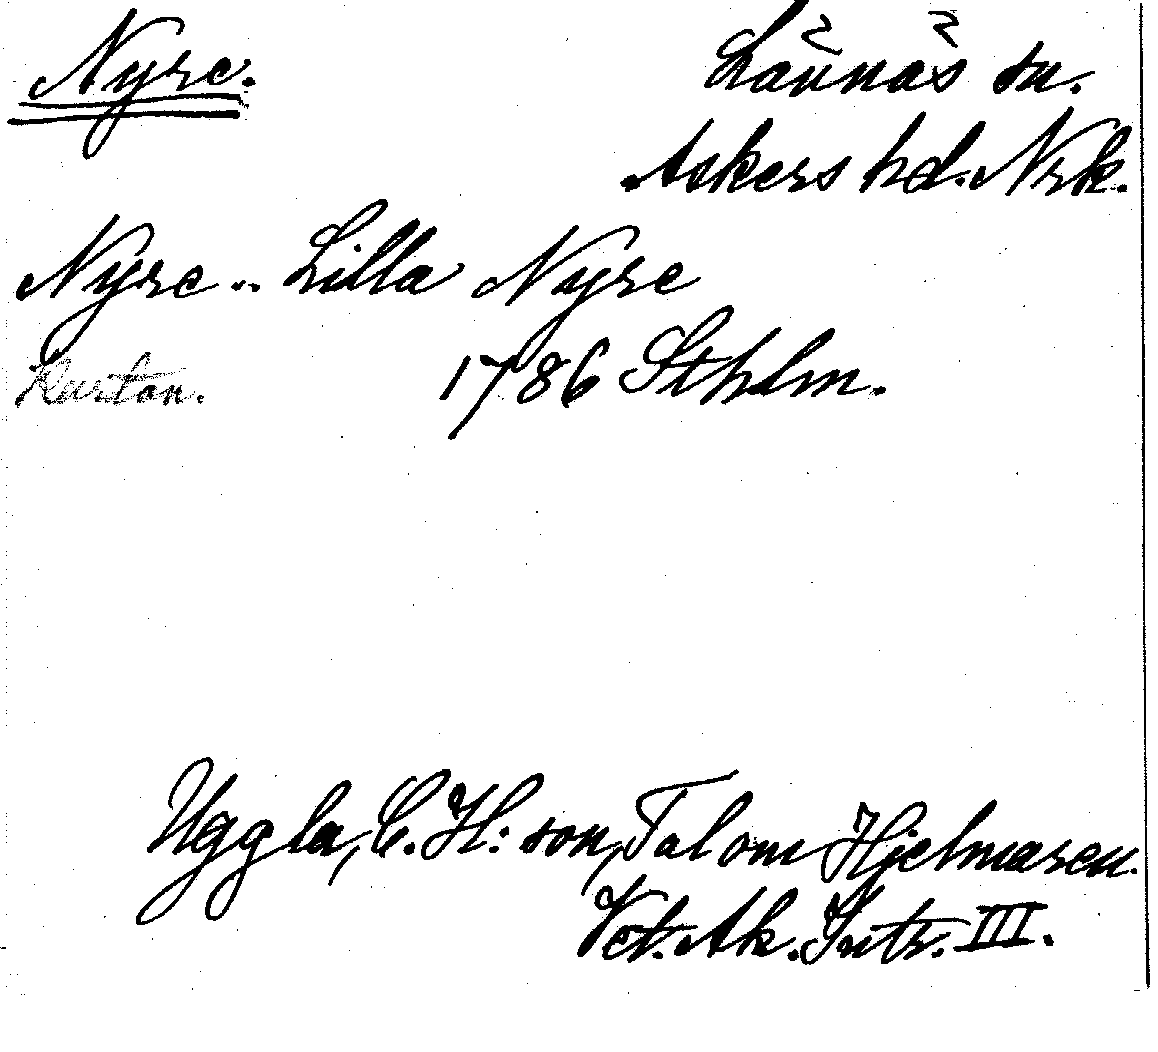 Nyre.
Lännäs sn.
Askers hd. Nrk.
Nyre - Lilla Nyre
Kartan. 1786 Sthlm.
Uggla, C. H:son, Tal om Hjelmaren.
Vet. Ak. Intr. III.